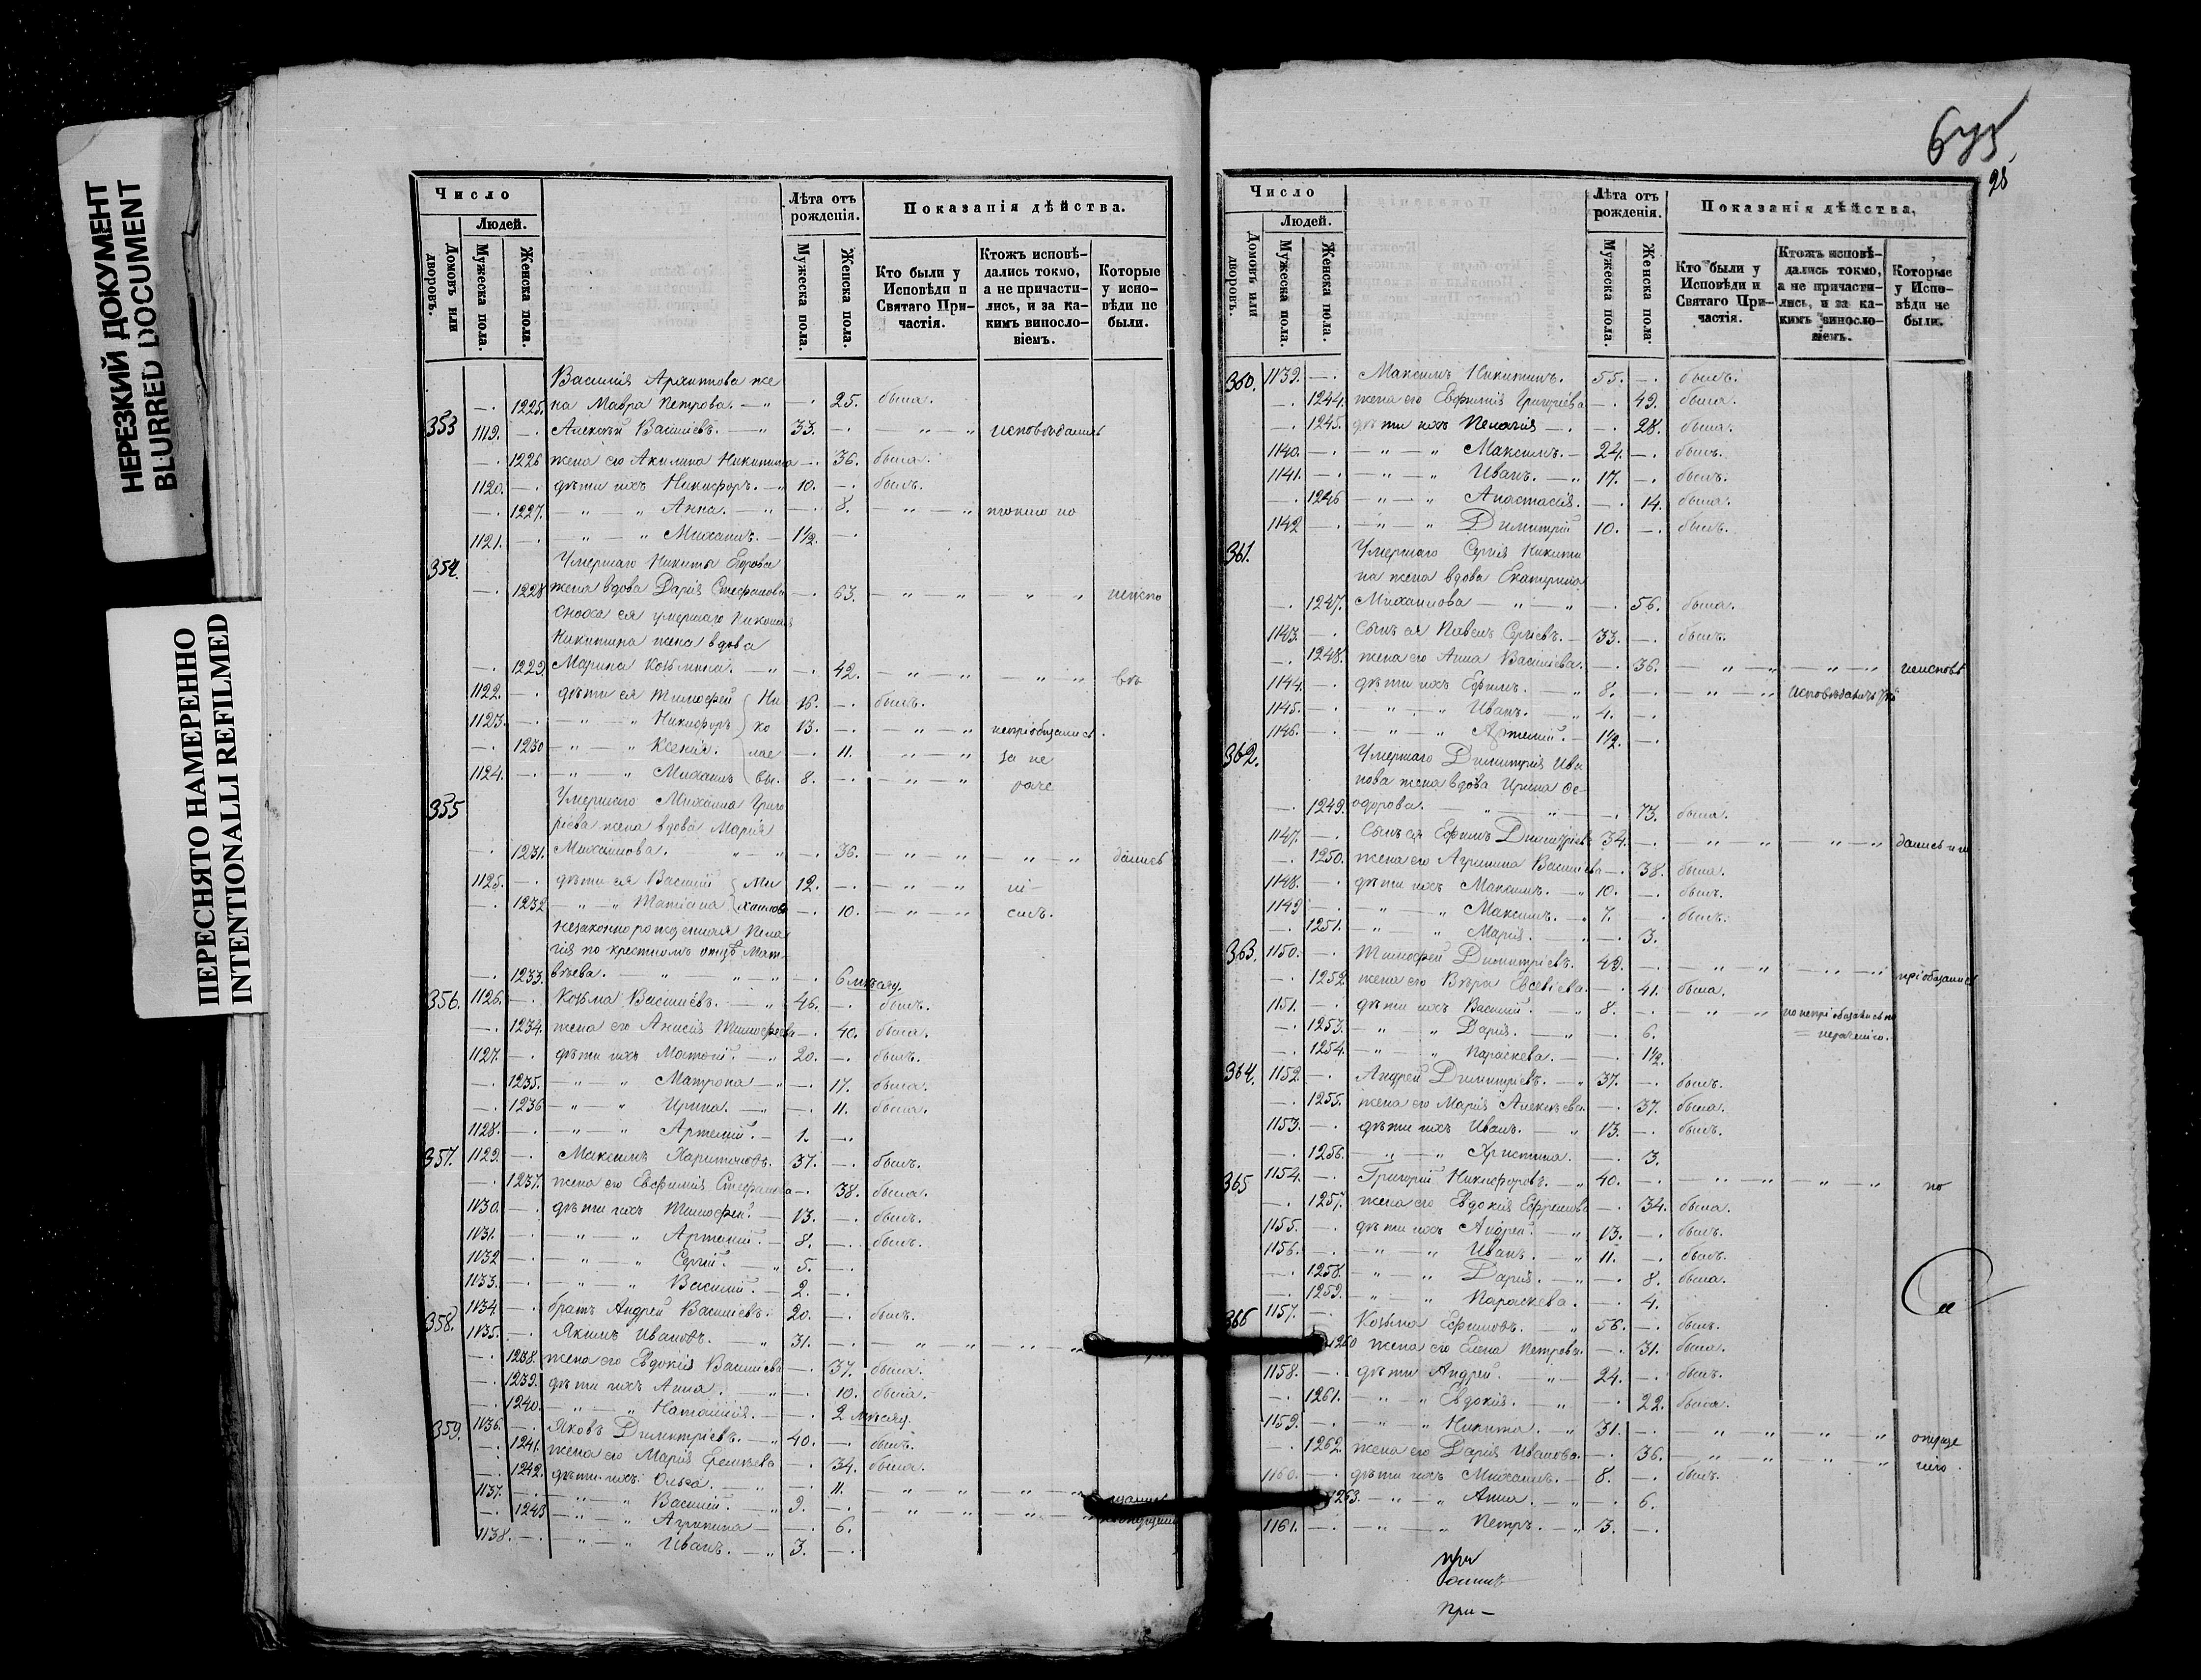 НЕРЕЗКИЙ ДОКУМЕНТ
BLURRED DOCUMENT
ПЕРЕСНЯТО НАМЕРЕННО
INTENTIONALLI REFILMED
Число
Людей.
Домовъ или дворовъ.
Мужеска пола.
Женска пола.
Лѣта отъ рожденія.
Мужеска пола.
Женска пола.
Показанія дѣйства.
Кто были у Исповѣди и Святаго Причастія.
Ктожъ исповѣдались токмо, а не причастились, и за какимъ винословіемъ.
Которые у исповѣди не были.
Василія Архипова же
—. 1225. на Мавра Петрова. — „ —. 25. была.
353 1119. —. Алексѣй Васильевъ. — „ 33. —. — „ — „ исповѣдались
—. 1226 жена его Акилина Никитина —. 36. была.
1120. —. дѣти ихъ Никифоръ. — „ 10. —. былъ.
—. 1227. — „ — „ Анна. — „ —. 8. — „ — „ токмо но
1121. —. — „ — „ Михаилъ. — 1½. —.
354. Умершаго Никиты Егорова
—. 1228 жена вдова Дарія Стефанова —. 63. — „ — „ — „ „ неиспо
сноха ея умершаго Николая
Никитина жена вдова
—. 1229. Марина Козьмина. — „ —. 42. — „ — „ „ „ вѣ
1122. —. дѣти ея Тимофей Ни 16. —. былъ.
1123. —. — „ — „ Никифоръ ко 13. —. — „ — „ непріобщались.
—. 1230 — „ — „ Ксенія. лае —. 11. „ „ за не
1124. —. — „ — „ Михаилъ вы. 8. —. — „ — „ раче
355 Умершаго Михаила Григо
ріева жена вдова Марія
—. 1231. Михаилова. — „ — „ —. 36. — „ — „ — „ — „ дались
1125. —. дѣти ея Василій Ми 12. —. — „ — „ ні-
—. 1232 — „ — „ Татіана хаиловы —. 10. — „ — „ емъ.
незаконнорожденная Пела
гія по крестномъ отцѣ Мат
—. 1233. вѣева. — „ — „ —. 6 мѣсяц.
356. 1126. —. Козьма Васильевъ. — „ 46. —. былъ.
—. 1234. жена его Анисія Тимофеева —. 40. была.
1127. —. дѣти ихъ Матвій. — „ 20. —. былъ.
—. 1235. — „ — „ Матрона — „ —. 17. была.
—. 1236 — „ — „ Ирина. — „ —. 11. была.
1128. —. — „ — „ Артемій. — 1. —.
357. 1129. —. Максимъ Харитоновъ. 37. —. былъ.
—. 1237. жена его Евфимія Стефанова —. 38. была.
1130. —. дѣти ихъ Тимофей. — 13. —. былъ.
1131. —. — „ — „ Артемій. — 8. —. былъ.
1132 —. — „ — „ Сергій. — „ 5. —.
1133. —. — „ — „ Василій. — 2. —.
1134. —. братъ Андрей Васильевъ. 20. —. былъ.
358. 1135. —. Якимъ Ивановъ. — „ 31. —. — „ — „ — „ — „
—. 1238. жена его Евдокія Васильева —. 37. была.
—. 1239. дѣти ихъ Анна. — „ —. 10. была.
—. 1240. — „ — „ Наталія. — —. 2 мѣсяц.
359. 1136. —. Яковъ Димитріевъ. — „ 40. —. былъ.
—. 1241. жена его Марія —. 34. была.
—. 1242. дѣти ихъ Ольга. — „ —. 11. — „ — „ — „ — „
1137. —. — „ — „ Василій. — „ 9. —. — „ — „ — „ — „
—. 1243 — „ — „ Агрипина — —. 6.
1138. —. — „ — „ Иванъ. — „ 3. —.
28
Число
Людей.
Домовъ или дворовъ.
Мужеска пола.
Женска пола.
Лѣта отъ рожденія.
Мужеска пола.
Женска пола.
Показанія дѣйства,
Кто были у Исповѣди и Святаго Причастія.
Ктожъ исповѣдались токмо, а не причастились, и за какимъ винословіемъ.
Которые у Исповѣди не были.
360. 1139. —. Максимъ Никитинъ. 55. —. былъ.
—. 1244. жена его Евфимія Григоріева —. 49. была.
—. 1245. дѣти ихъ Пелагія —. —. 28. была.
1140. —. — „ — „ Максимъ. — 24. —. былъ.
1141. —. — „ — „ Иванъ. — „ 17. —. былъ.
—. 1246 — „ — „ Анастасія. —. 14. была.
1142 —. — „ — „ Димитрій 10. —. былъ.
361. Умершаго Сергія Никити
на жена вдова Екатерина
—. 1247. Михаилова — „ — „ —. 56. была.
1143. —. Сынъ ея Павелъ Сергіевъ. — 33. —. былъ.
—. 1248. жена его Анна Васильева. —. 36. — „ — „ — „ — „ неисповѣ
1144. —. дѣти ихъ Ефимъ. — „ 8. —. „ — „ Исповѣдались
1145. —. „ — „ Иванъ. — „ 4. —.
1146. —. — „ — „ Артемій. — 1½. —.
362. Умершаго Димитрія Ива
нова жена вдова Ирина Ѳе
—. 1249. одорова. — „ — „ —. 73. была.
1147. —. Сынъ ея Ефимъ Димитріевъ 34. —. — „ — „ — „ — „ дались и
—. 1250. жена его Агрипина Васильева —. 38. была.
1148. —. дѣти ихъ Максимъ. — „ 10. —. былъ.
1149 —. — „ — „ Максимъ. — „ 7. —. былъ.
—. 1251. — „ — „ Марія. — „ —. 3.
363. 1150. —. Тимофей Димитріевъ. 49. —. — „ — „ — „ — „ пріобщались
—. 1252. жена его Вѣра Евсевіева. —. 41. была.
1151. —. дѣти ихъ Василій. — „ 8. —. — „ — „ но непріобщались по
—. 1253. — „ — „ Дарія. — „ —. 6. = нераченію.
—. 1254. — „ — „ Параскева. — —. 1½.
364. 1152. —. Андрей Димитріевъ. — „ 37. —. былъ.
—. 1255. жена его Марія Алексѣева. —. 37. была.
1153. —. дѣти ихъ Иванъ. — „ 13. —. былъ.
—. 1256. — „ — „ Христина. —. 3.
365 1154. —. Григорій Никифоровъ. — „ 40. —. — „ — „ — „ — „ по
—. 1257. жена его Евдокія Ефремова —. 34. была.
1155. —. дѣти ихъ Андрей. — „ 13. —. былъ.
1156. —. — „ — „ Иванъ. — „ 11. —. былъ.
—. 1258. — „ — „ Дарія. — „ —. 8. была.
—. 1259. — „ — „ Параскева. —. 4.
366 1157. —. Козьма Ефимовъ. — „ 56. —. былъ.
1260 жена его Елена Петрова. —. 31. была.
1158. —. дѣти Андрей. — „ 24. —. былъ.
—. 1261. — „ — „ Евдокія. — „ —. 22. была.
1159. —. — „ — „ Никита. — „ 31. —. — „ — „ — „ — „
—. 1262. жена его Дарія Иванова. —. 36. — „ — „ — „ — „
1160. —. дѣти ихъ Михаилъ. — 8. —. былъ.
1263. — „ — „ Анна. — „ —. 6.
1161. —. — „ — „ Петръ. — „ 3. —.
при
При —